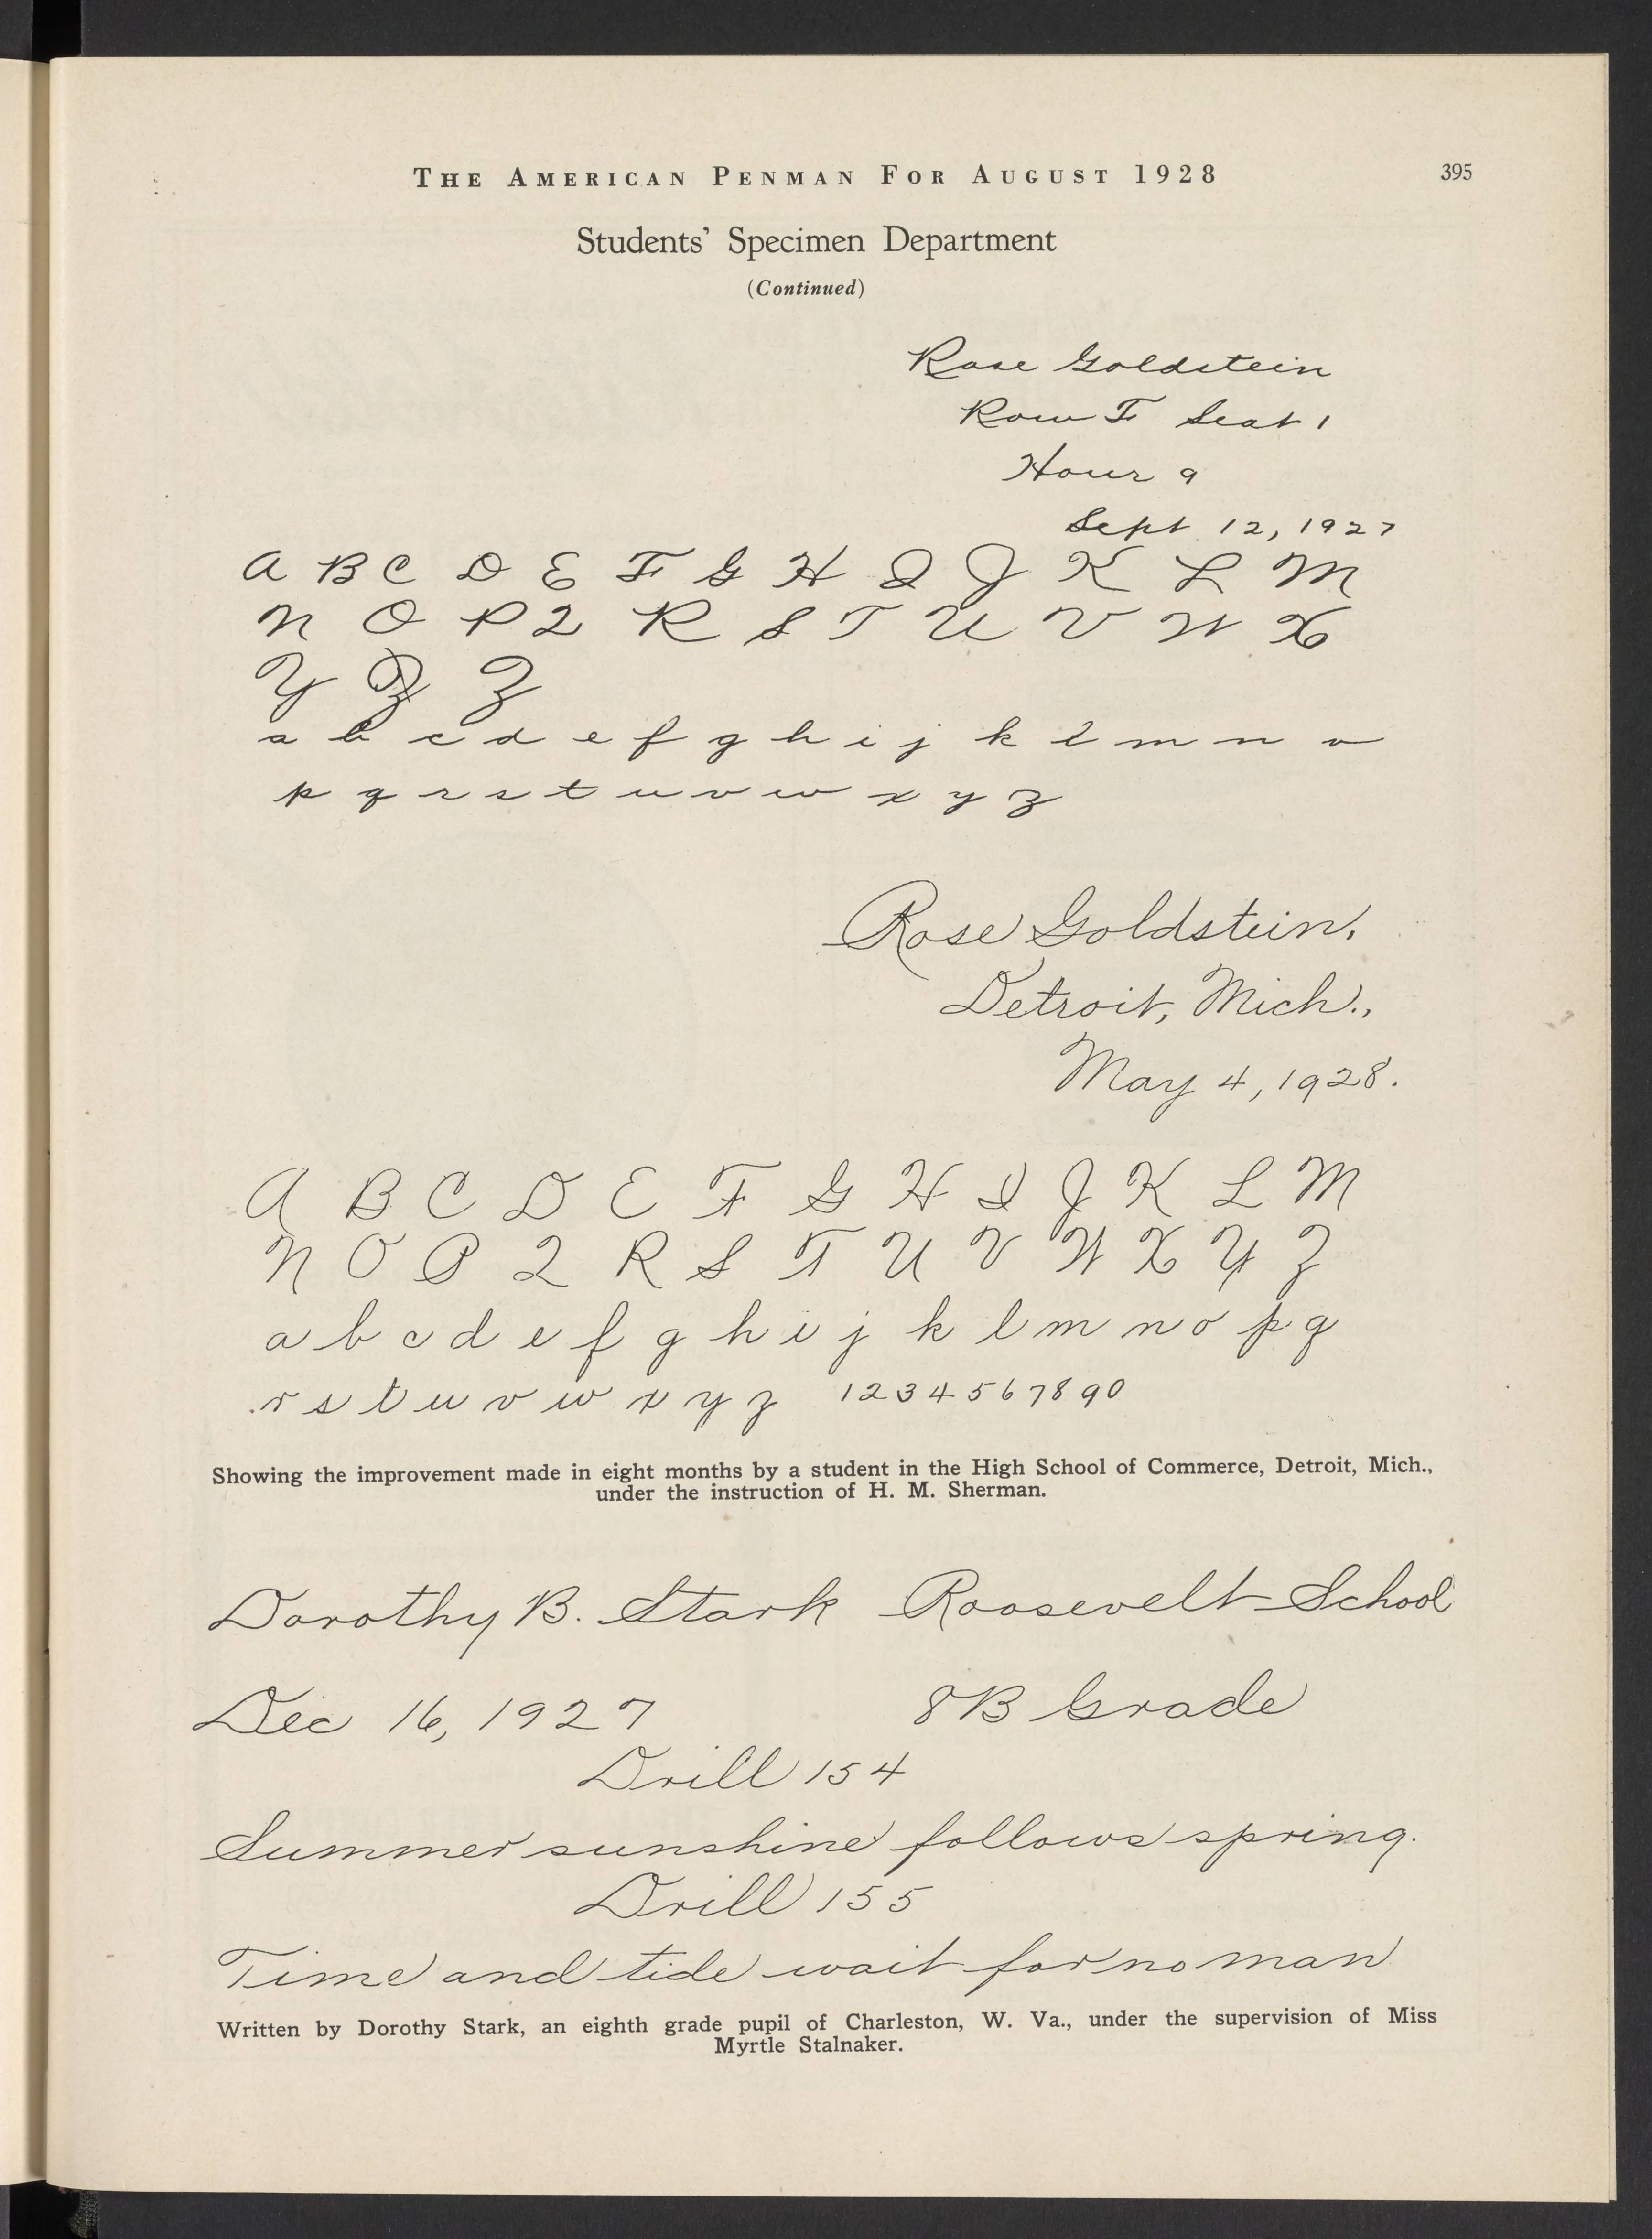 THE AMERICAN PENMAN FOR AUGUST 1928 395
Students' Specimen Department
(Continued)
Rose Goldstein
Row F Seat 1
Hour 9
Sept 12, 1927
A B C D E F G H I J K L M
N O P Q R S T U V W X
Y Z Z
a b c d e f g h i j k l m n o
p q r s t u v w x y z
Rose Goldstein,
Detroit, Mich.,
May 4, 1928.
A B C D E F G H I J K L M
N O P Q R S T U V W X Y Z
a b c d e f g h i j k l m n o p q
r s t u v w x y z 1 2 3 4 5 6 7 8 9 0
Showing the improvement made in eight months by a student in the High School of Commerce, Detroit, Mich.,
under the instruction of H. M. Sherman.
Dorothy B. Stark Roosevelt School
Dec 16, 1927 8B Grade
Drill 154
Summer sunshine follows spring.
Drill 155
Time and tide wait for no man
Written by Dorothy Stark, an eighth grade pupil of Charleston, W. Va., under the supervision of Miss
Myrtle Stalnaker.